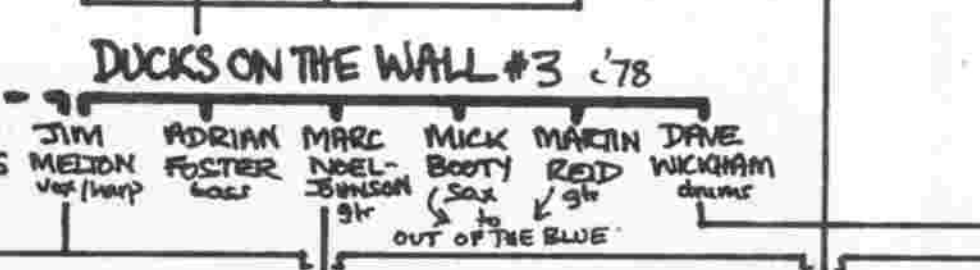 DUCKS ON THE WALL #3 c.'78
JIM MELTON vox/harp
ADRIAN FOSTER bass
MARC NOEL-JOHNSON gtr
MICK BOOTY sax
MARTIN REID gtr
DAVE WICKHAM drums
to
OUT OF THE BLUE